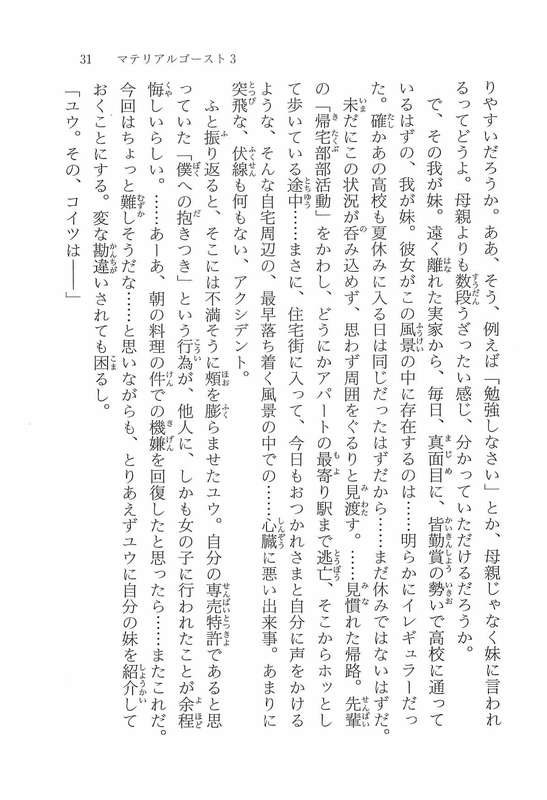 31　マテリアルゴースト3
りやすいだろうか。ああ、そう、例えば「勉強しなさい」とか、母親じゃなく妹に言われ
るってどうよ。母親よりも数段うざったい感じ、分かっていただけるだろうか。
で、その我が妹。遠く離れた実家から、毎日、真面目に、皆勤賞の勢いで高校に通って
いるはずの、我が妹。彼女がこの風景の中に存在するのは……明らかにイレギュラーだっ
た。確かあの高校も夏休みに入る日は同じだったはずだから……まだ休みではないはずだ。
未だにこの状況が呑み込めず、思わず周囲をぐるりと見渡す。……見慣れた帰路。先輩
の「帰宅部部活動」をかわし、どうにかアパートの最寄り駅まで逃亡、そこからホッとし
て歩いている途中……まさに、住宅街に入って、今日もおつかれさまと自分に声をかける
ような、そんな自宅周辺の、最早落ち着く風景の中での……心臓に悪い出来事。あまりに
突飛な、伏線も何もない、アクシデント。
ふと振り返ると、そこには不満そうに頬を膨らませたユウ。自分の専売特許であると思
っていた「僕への抱きつき」という行為が、他人に、しかも女の子に行われたことが余程
悔しいらしい。……あーあ、朝の料理の件での機嫌を回復したと思ったら……またこれだ。
今回はちょっと難しそうだな……と思いながらも、とりあえずユウに自分の妹を紹介して
おくことにする。変な勘違いされても困るし。
「ユウ。その、コイツは――」